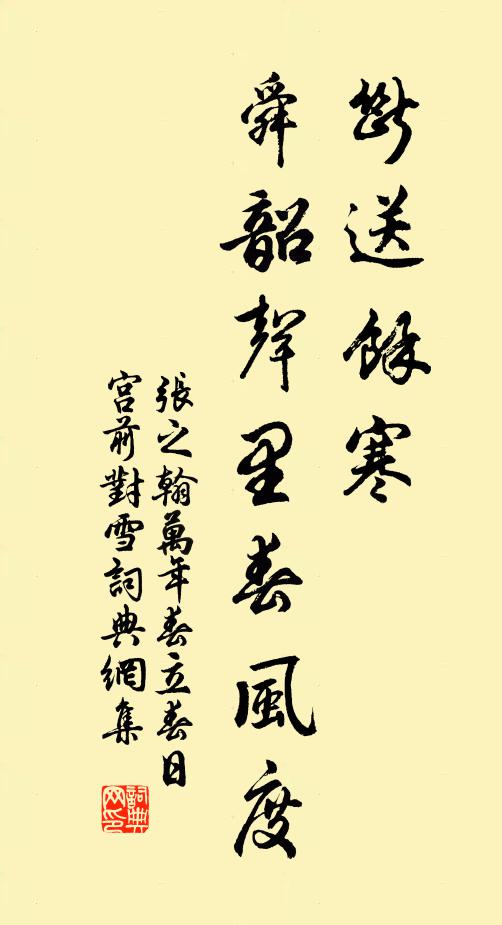 斷送餘寒
舜韶聲里春風度
張之翰萬年春立春日
宮前對雪詞典網集
詞典
网印